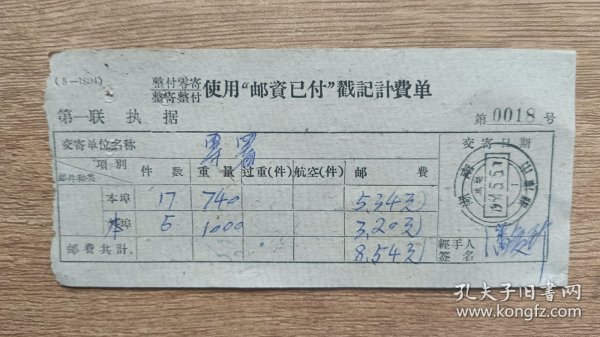 (5—1804)
整付零寄
整寄整付
使用“邮資已付”戳記計費单
第一联 执 据
第 0018 号
交寄单位名称 専署
交寄日期
項別
邮件种类
件 数
重 量
过重(件)
航空(件)
邮 費
本埠 17 740 5.34元
本埠 5 1000 3.20元
邮費共計 8.54元
經手人
签名
孔夫子旧书网
www.kongfz.com